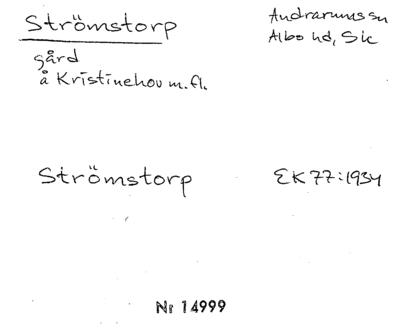 Strömstorp
Andrarums sn
Albo hd, Sk
gård
å Kristinehov m.fl.
Strömstorp
EK 77:1934
Nr 14999